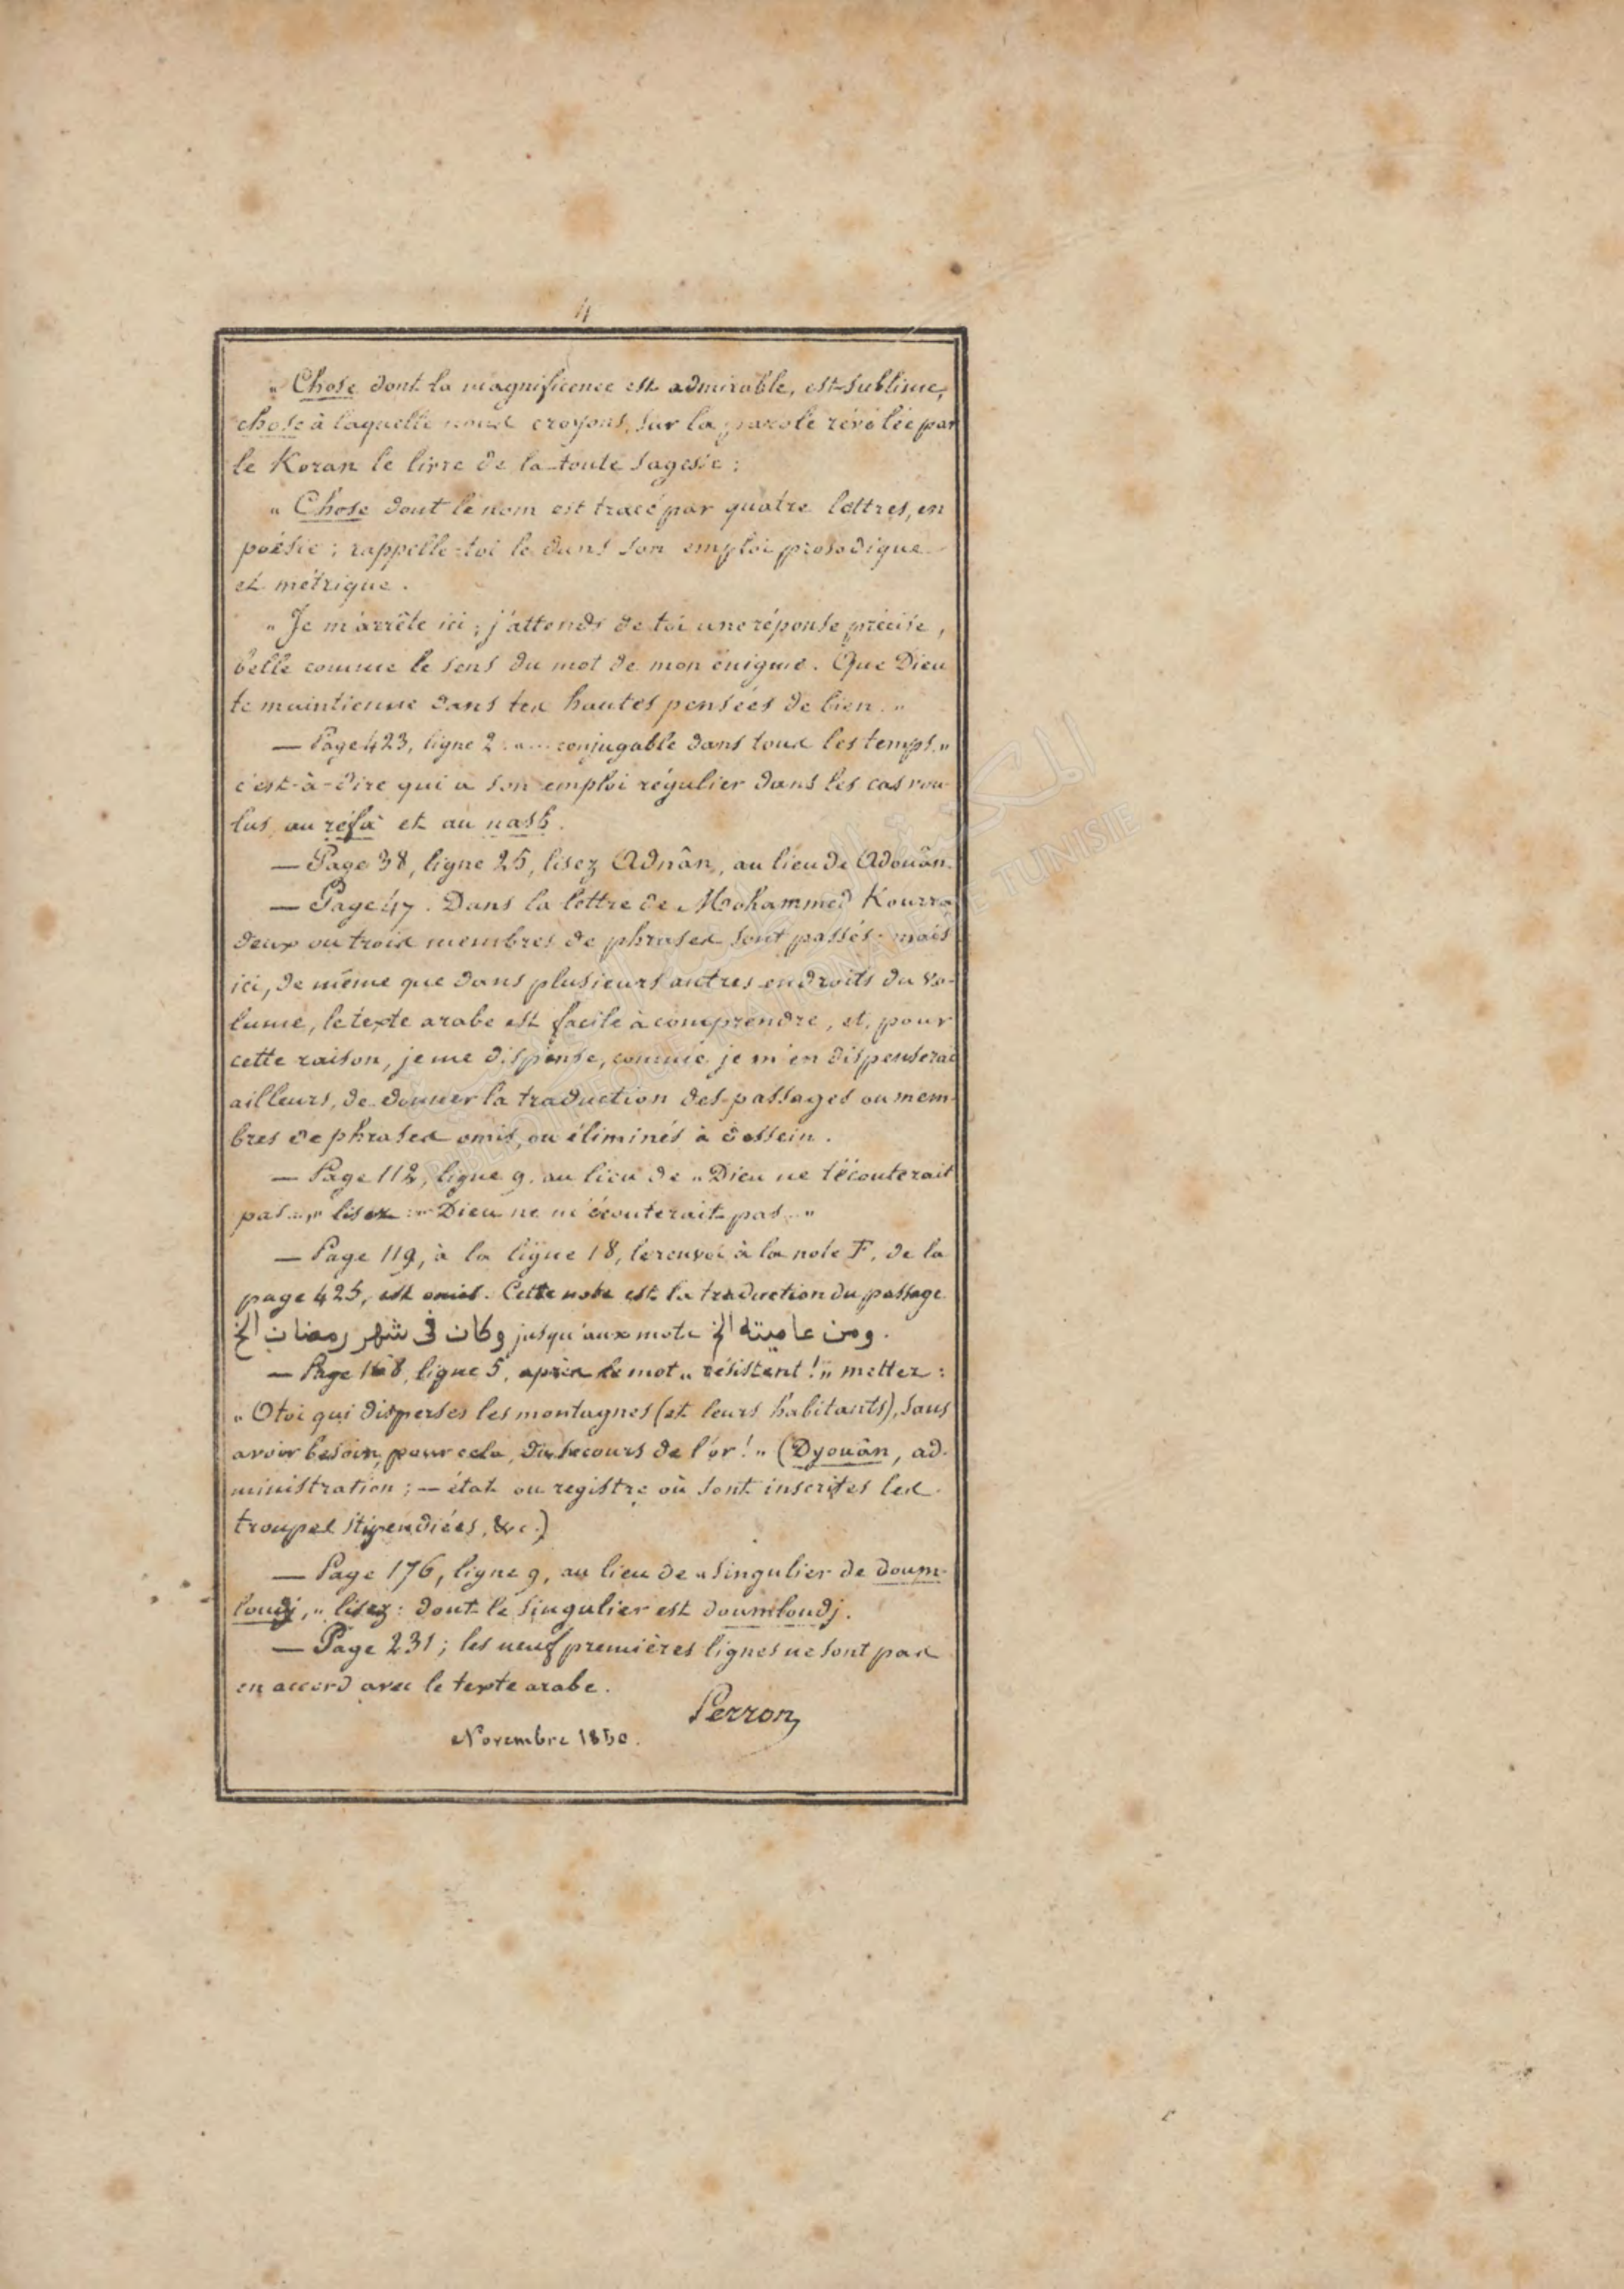 4
" Chose dont la magnificence est admirable, est sublime,
chose à laquelle nous croyons, sur la parole révélée par
le Koran le livre de la toute sagesse ;
" Chose dont le nom est tracé par quatre lettres, en
poésie ; rappelle-toi le dans son emploi prosodique
et métrique.
" Je m'arrête ici ; j'attends de toi une réponse précise,
belle comme le sens du mot de mon énigme. Que Dieu
te maintienne dans tes hautes pensées de bien. "
— Page 423, ligne 2 : "... conjugable dans tous les temps, "
c'est-à-dire qui a son emploi régulier dans les cas vou-
lus, au réfa et au nasb.
— Page 38, ligne 25, lisez Adnân, au lieu de Adouân.
— Page 47. Dans la lettre de Mohammed Kourra
deux ou trois membres de phrases sont passés. mais
ici, de même que dans plusieurs autres endroits du vo-
lume, le texte arabe est facile à comprendre, et, pour
cette raison, je me dispense, comme je m'en dispenserai
ailleurs, de donner la traduction des passages ou mem-
bres de phrases omis, ou éliminés à dessein.
— Page 112, ligne 9. au lieu de " Dieu ne t'écouterait
pas..., " lisez : " Dieu ne m'écouterait pas... "
— Page 119, à la ligne 18, le renvoi à la note F, de la
page 425, est omis. Cette note est la traduction du passage
وكان فى شهر رمضان الخ jusqu'aux mots ومن عاميته الخ.
— Page 168, ligne 5, après le mot " résistent ! " mettez :
" O toi qui disperses les montagnes (et leurs habitants), sans
avoir besoin, pour cela, du secours de l'or ! " (Dyouân, ad-
ministration ; — état ou registre où sont inscrites les
troupes stipendiées, &c.)
— Page 176, ligne 9, au lieu de " singulier de doum-
loudj, " lisez : dont le singulier est doumloudj.
— Page 231 ; les neuf premières lignes ne sont pas
en accord avec le texte arabe.
Perron,
Novembre 1850.
المكتبة الوطنية التونسية
BIBLIOTHEQUE NATIONALE DE TUNISIE